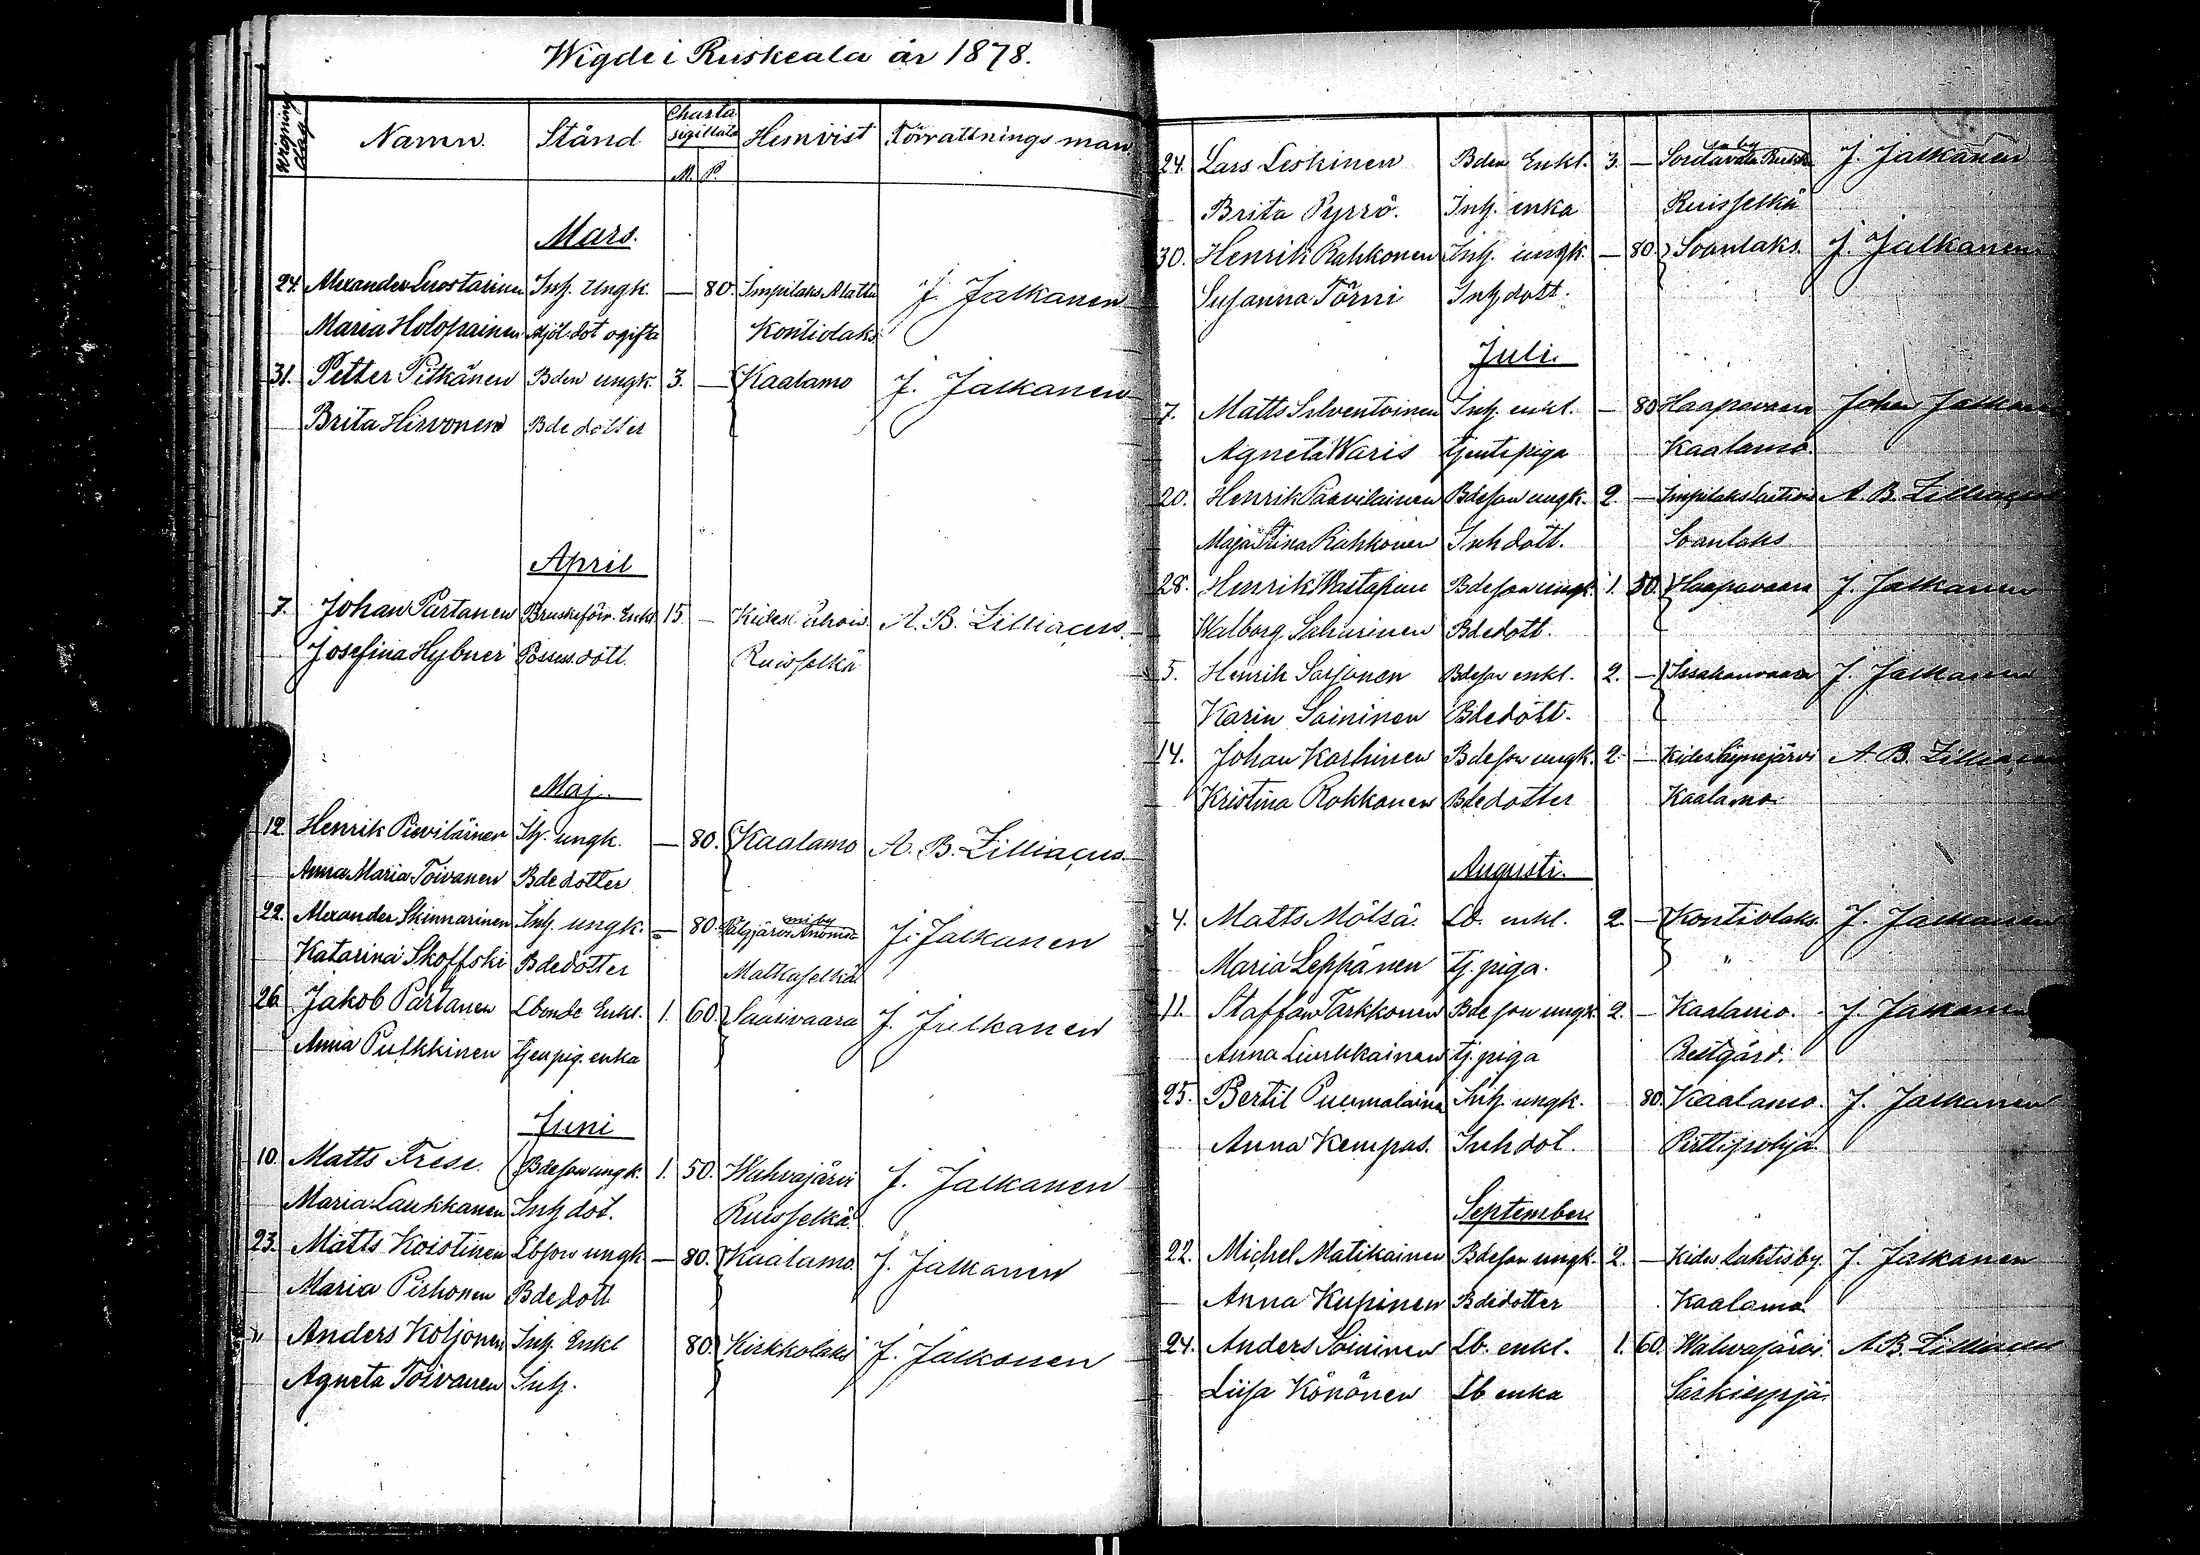 Wigde i Ruskeala år 1878.
Wigning dag Namn. Stånd Charta sigillata Hemvist Förrättnings man
M. P.
Mars.
24. Alexander Luostarinen Inh. Ungk. — 80. Impilaks Alattu J. Jalkanen
Maria Holopainen Mjöl. dot ogifta Kontiolaks
31. Petter Pitkänen Bden ungk. 3. — Kaalamo J. Jalkanen
Brita Hirvonen Bde dotter
April
7. Johan Partanen Bruksförv. Enkl 15 — Kides A. B. Zilliacus.
Josefina Hybner Possess. dott. Ruisselkä
Maj.
12. Henrik Pieviläinen Ih. ungk. — 80. Kaalamo A. B. Zilliacus
Anna Maria Toivanen Bde dotter
22. Alexander Skinnarinen Inh. ungk. — 80. Pelgjärvi J. Jalkanen
Katarina Skoffski Bdedotter Matkaselkä
26. Jakob Partanen Lbonde Enkl. 1. 60. Saarivaara J. Jalkanen
Anna Pulkkinen tjen pig. enka
Juni
10. Matts Frese. Bdeson ungk. 1. 50. Wahvajärvi J. Jalkanen
Maria Laukkanen Inh dot. Ruisselkä
23. Matts Koistinen Lbson ungk — 80. Kaalamo. J. Jalkanen
Maria Pirhonen Bde dott
" Anders Koljonen Inh. Enkl 80. Kirkkolaks J. Jalkanen
Agneta Toivanen Inh.
24. Lars Leskinen Bden Enkl. 3. — J. Jalkanen
Brita Pyrrö. Inh. enka Ruisselkä
30. Henrik Rahkonen Inh. ungk. — 80. Soanlaks. J. Jalkanen
Susanna Törni Inh dott.
Juli.
7. Matts Silventoinen Inh. enkl. — 80 Haapavaara Johan Jalkanen
Agneta Waris tjentepiga Kaalamo.
20. Henrik Paavilainen Bdeson ungk. 2. — Impilaks A. B. Zilliacus
Maja Stina Rahkonen Inh dott. Soanlaks
28. Henrik Bdeson ungk. 1. 50. Haapavaara J. Jalkanen
Walborg Saharinen Bdedott.
5. Henrik Sarjonen Bdeson enkl. 2. — Issakanvaara J. Jalkanen
Karin Soininen Bdedott.
14. Johan Karhinen Bdeson ungk. 2. — Kides A. B. Zilliacus
Kristina Rokkanen Bdedotter Kaalamo.
Augusti.
4. Matts Mölsä. Lb. enkl. 2. — Kontiolaks. J. Jalkanen
Maria Leppänen tj. piga. "
11. Staffan Tarkkonen Bdeson ungk 2. — Kaalamo. J. Jalkanen
Anna Liukkainen tj. piga Prestgård.
25. Bertil Puumalainen Inh. ungk. 80. Kaalamo. J. Jalkanen
Anna Kempas. Inh dot. Pirttipohja.
September.
22. Michel Matikainen Bdeson ungk. 2. — Kides Lahtisby. J. Jalkanen
Anna Kupinen Bdedotter Kaalamo.
24. Anders Soininen Lb. enkl. 1. 60. Wahvajärvi. A. B. Zilliacus
Liisa Könönen Lb enka